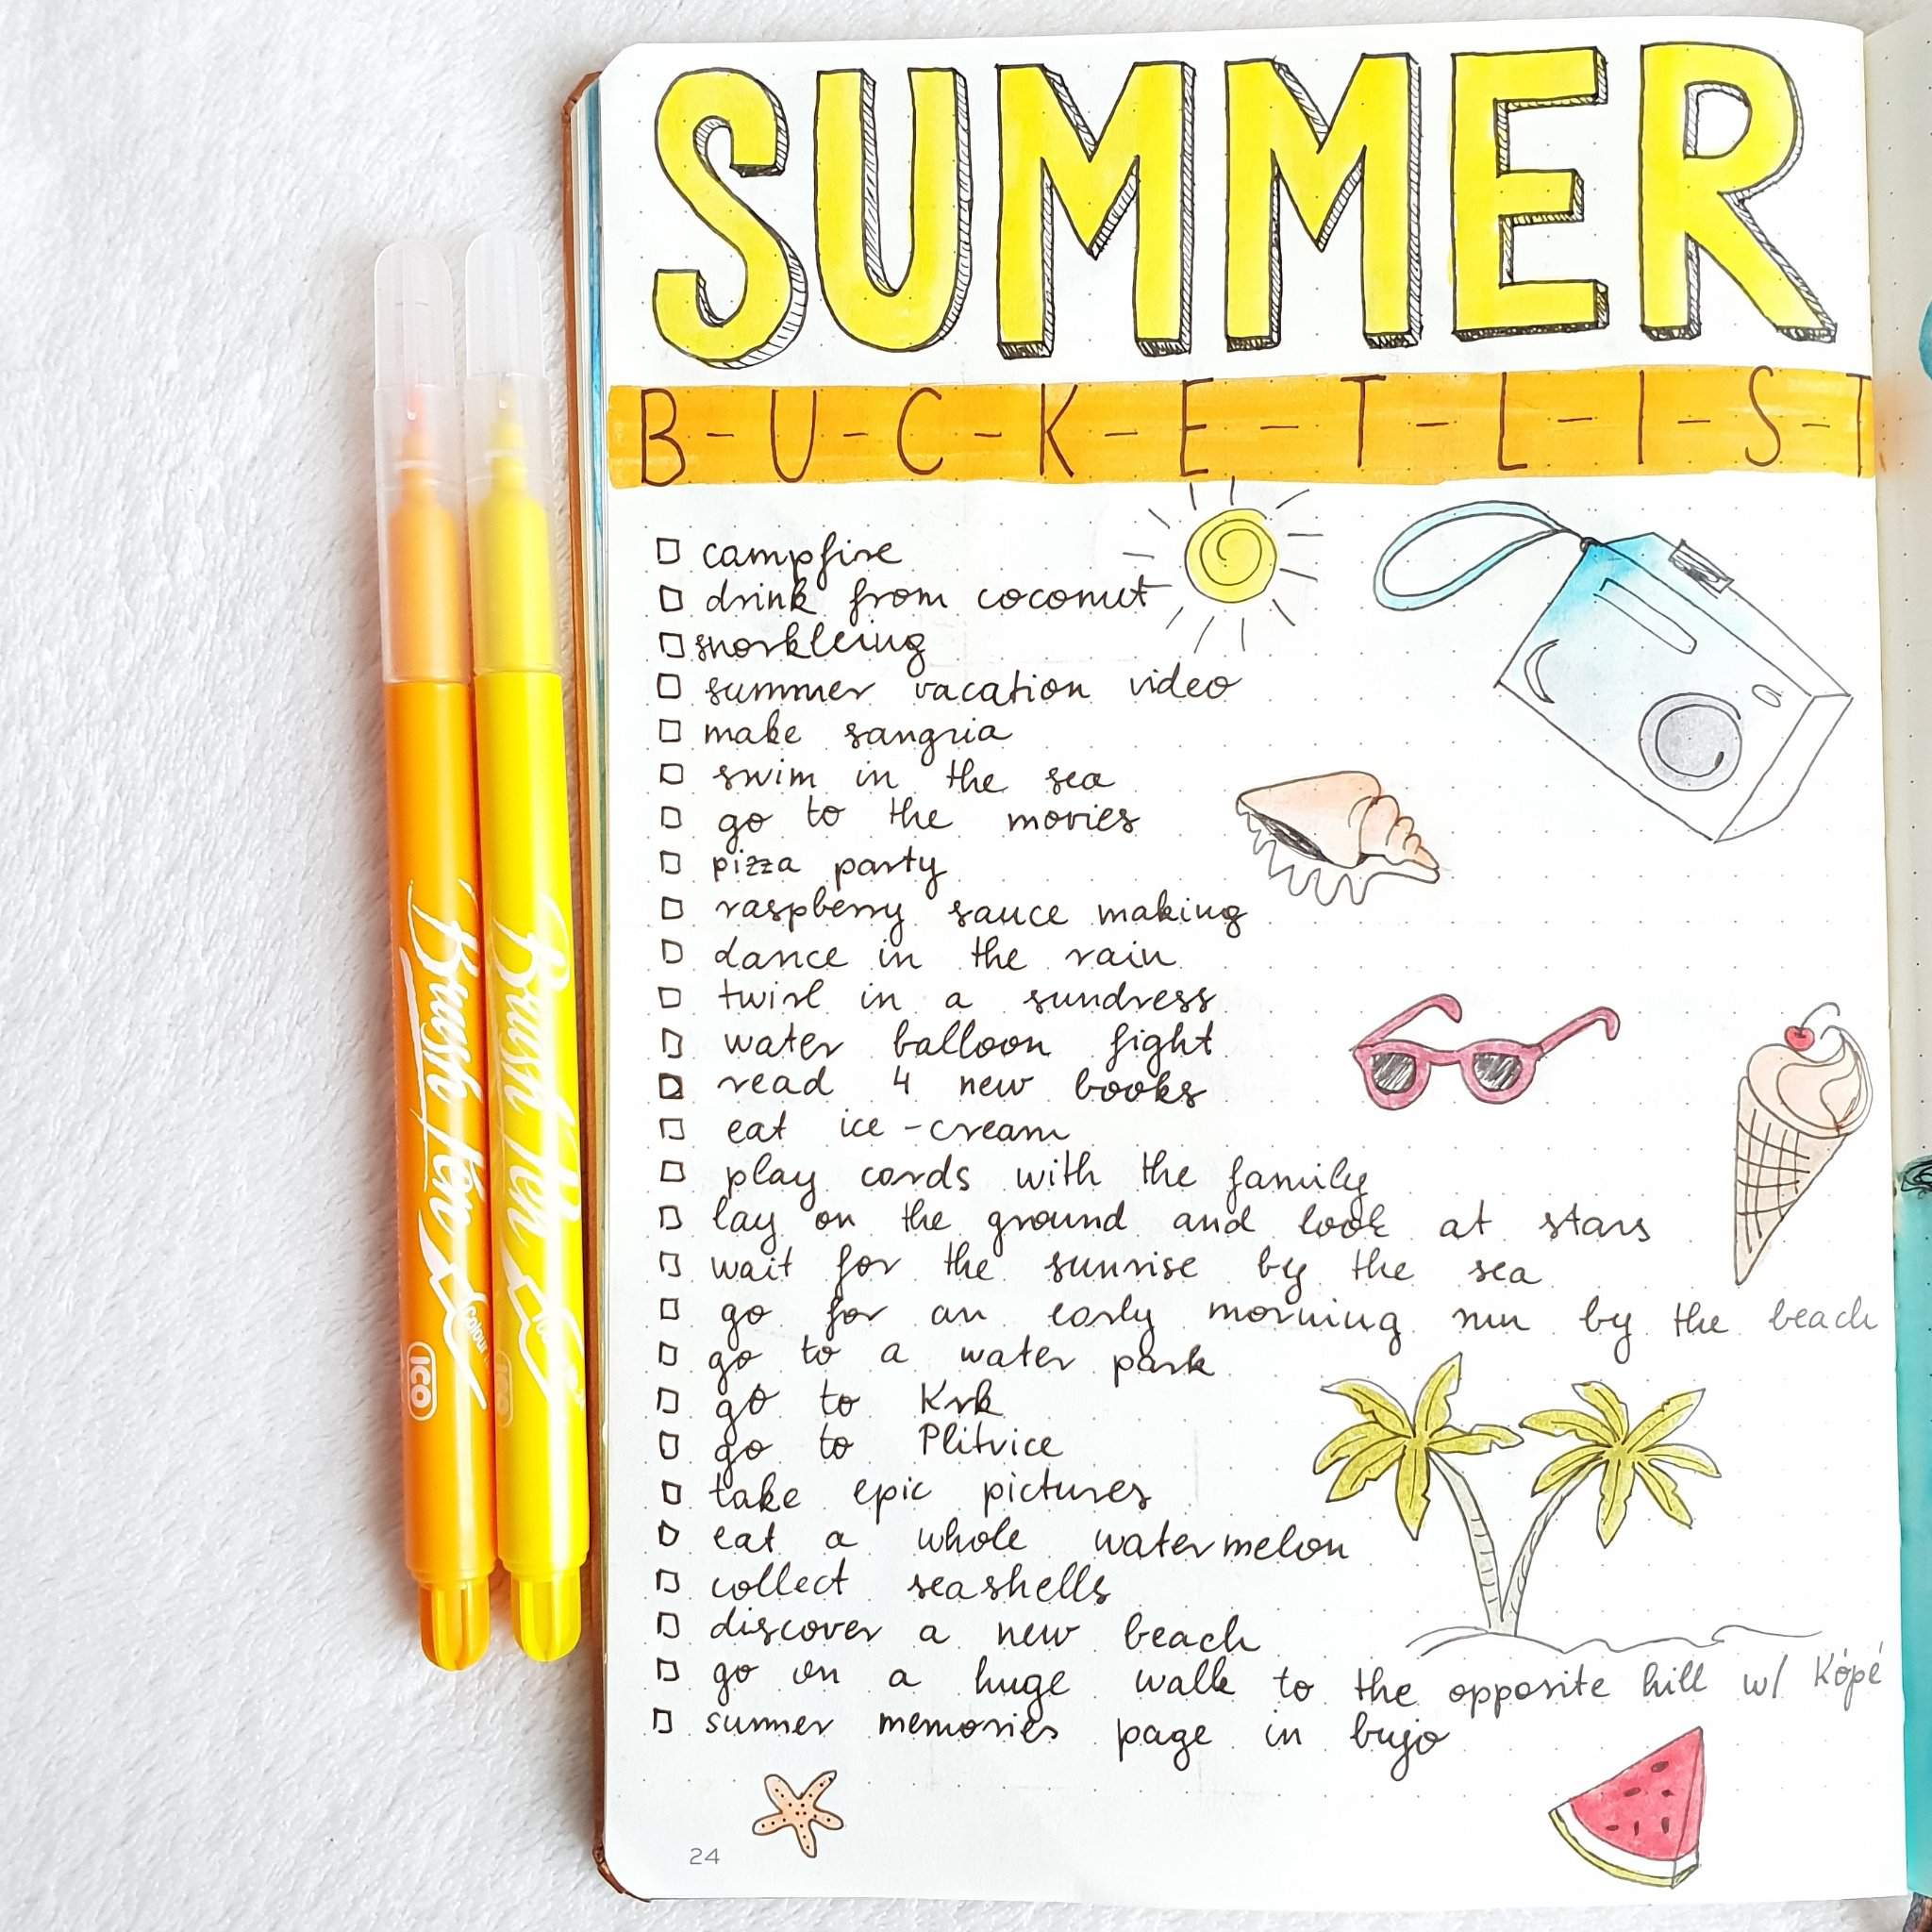 SUMMER
B-U-C-K-E-T-L-I-S-T
campfire
drink from coconut
snorkleing
summer vacation video
make sangria
swim in the sea
go to the movies
pizza party
raspberry sauce making
dance in the rain
twirl in a sundress
water balloon fight
read 4 new books
eat ice-cream
play cards with the family
lay on the ground and look at stars
wait for the sunrise by the sea
go for an early morning run by the beach
go to a water park
go to Krk
go to Plitvice
take epic pictures
eat a whole watermelon
collect seashells
discover a new beach
go on a huge walk to the opposite hill w/ Kópé
summer memories page in bujo
24
Brush Pen
Colour
ICO
Brush Pen
ICO